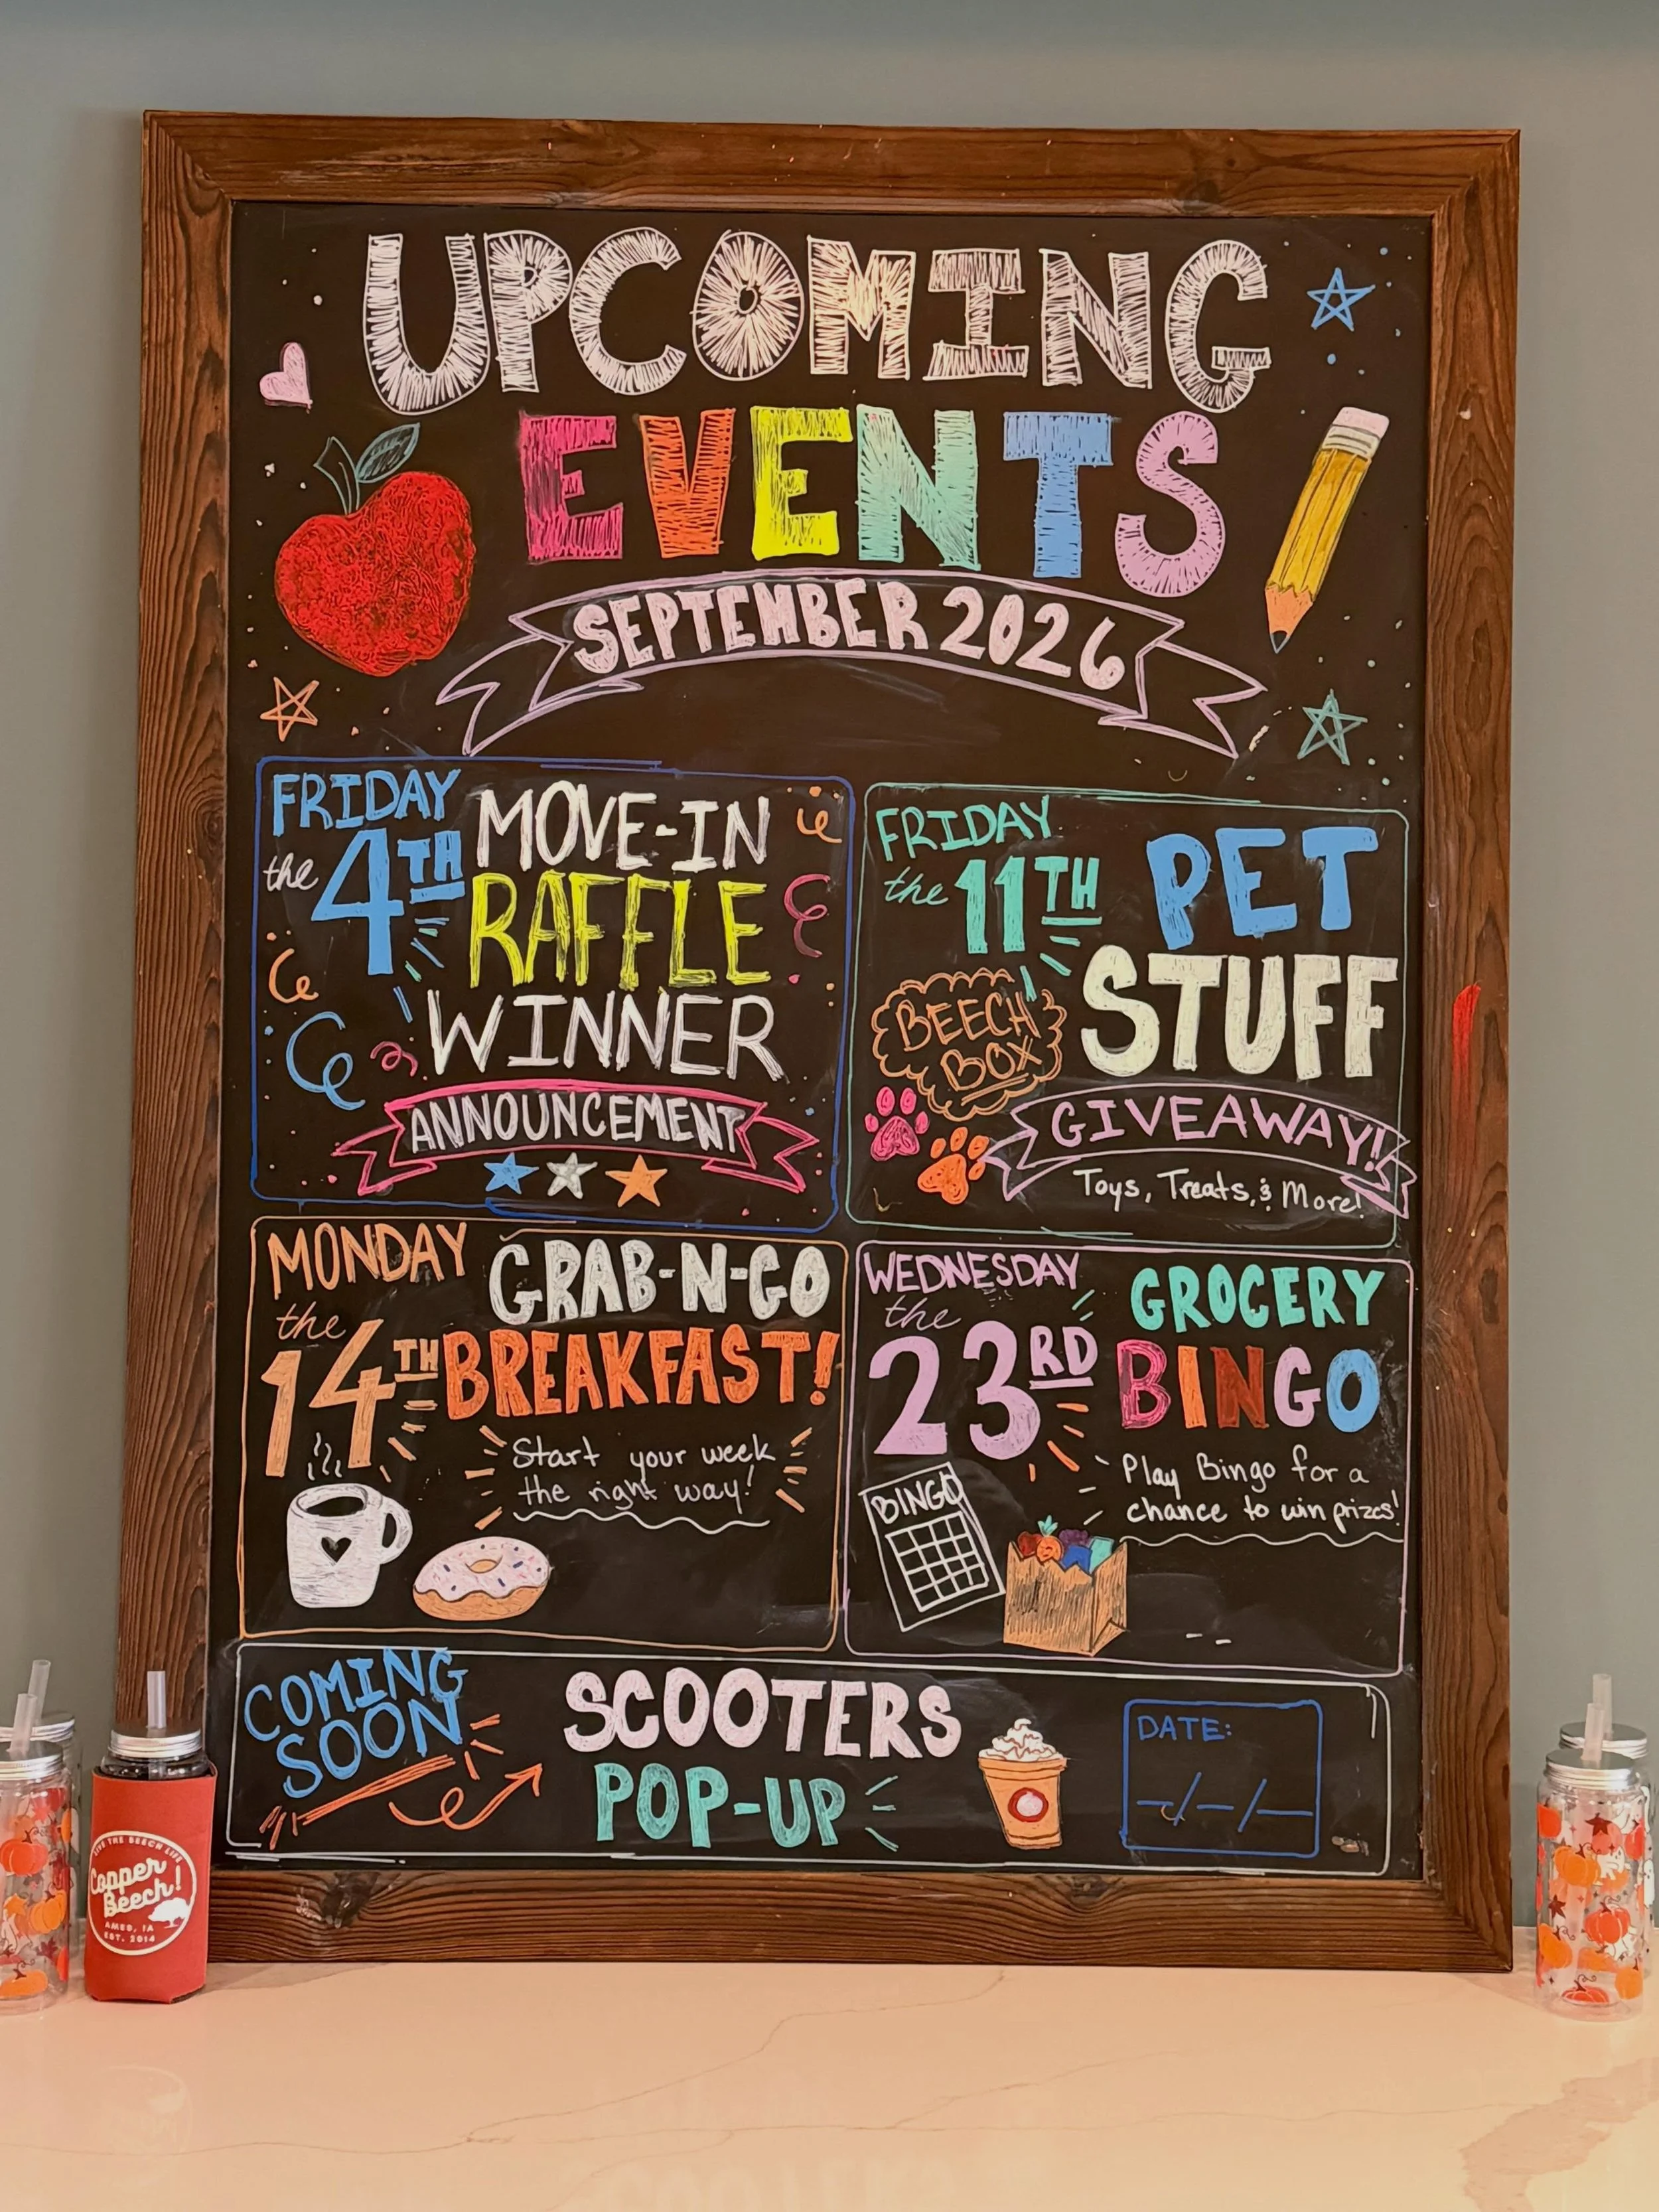 UPCOMING
EVENTS
SEPTEMBER 2026
FRIDAY
the 4TH
MOVE-IN
RAFFLE
WINNER
ANNOUNCEMENT
FRIDAY
the 11TH
PET
STUFF
BEECH
BOX
GIVEAWAY!
Toys, Treats, & More!
MONDAY
the
14TH
GRAB-N-GO
BREAKFAST!
Start your week
the right way!
WEDNESDAY
the
23RD
GROCERY
BINGO
Play Bingo for a
chance to win prizes!
BINGO
COMING
SOON
SCOOTERS
POP-UP
DATE:
_/_/_
LIVE THE BEECH LIFE
Copper
Beech!
AMES, IA
EST. 2014